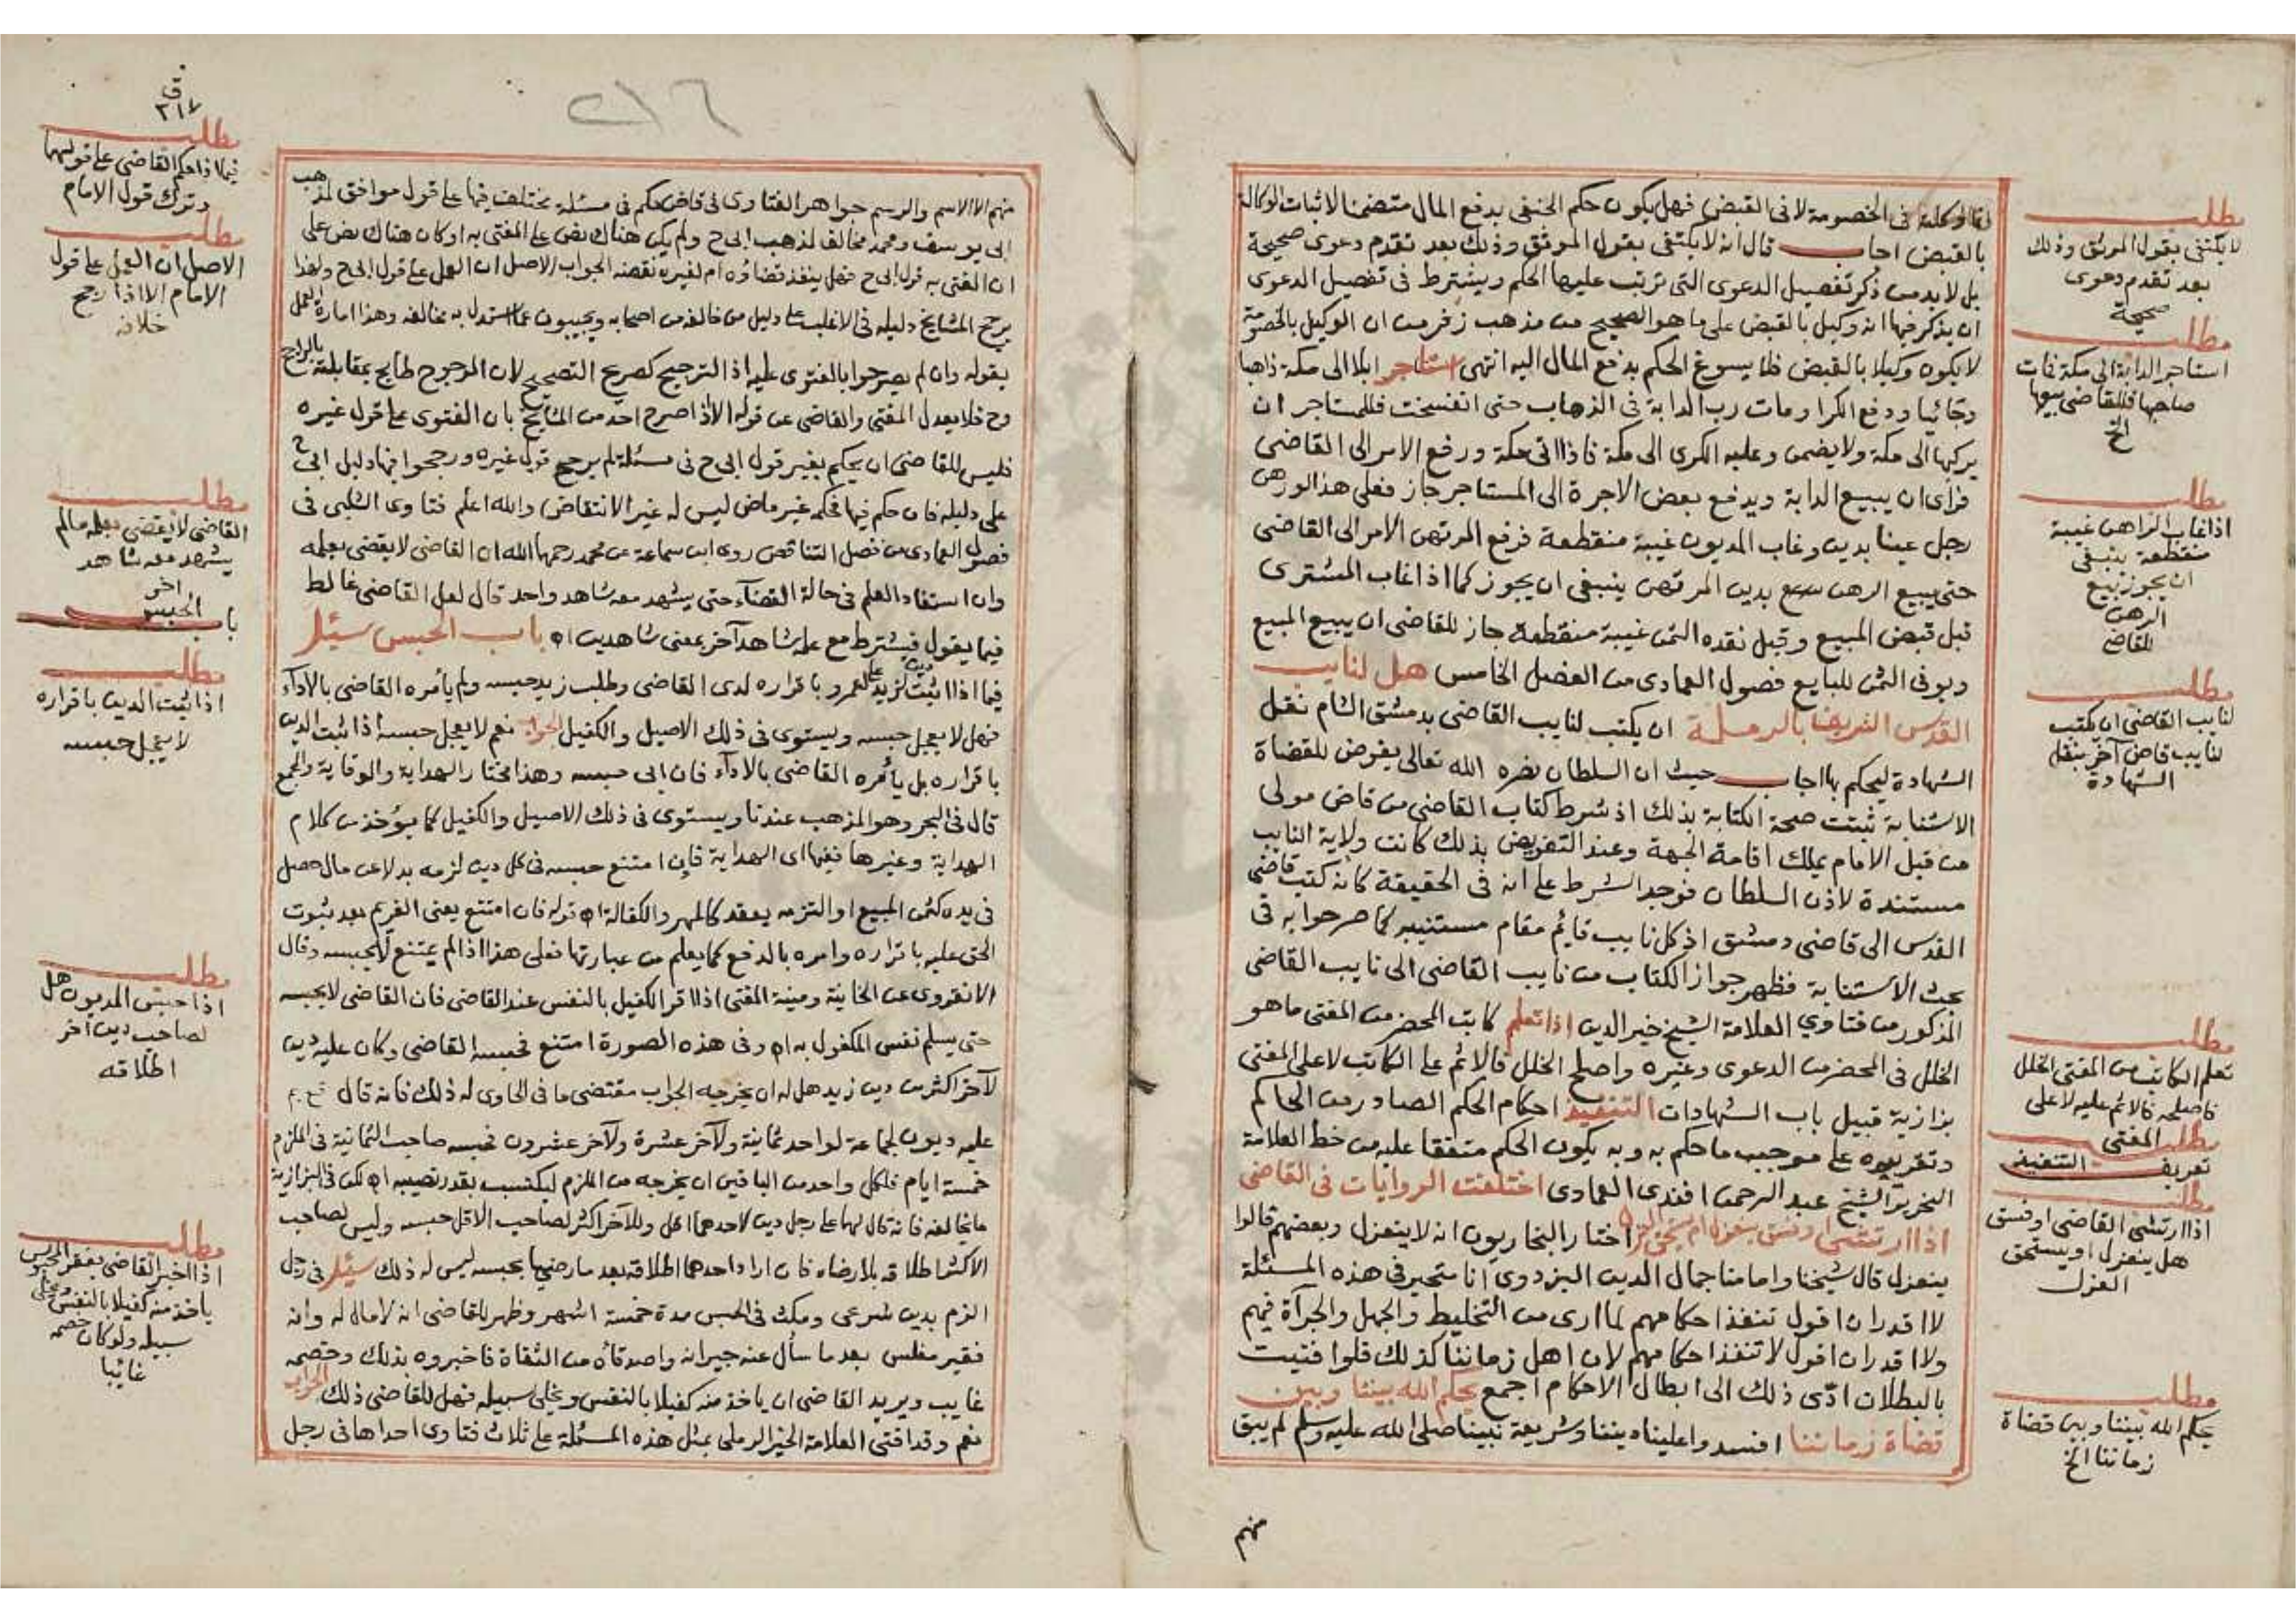 لا في الخصومة لا في القبض فهل يكون حكم الحنفي بدفع المال متضمنا لاثبات الوكالة
بالقبض اجاب قال انه لا يكتفى بقول الموثق وذلك بعد تقدم دعوى صحيحة
بل لا بد من ذكر تفصيل الدعوى التي ترتب عليها الحكم ويشترط في تفصيل الدعوى
ان يذكر فيها انه وكيل بالقبض على ما هو الصحيح من مذهب زفر من ان الوكيل بالخصومة
لا يكون وكيلا بالقبض فلا يسوغ الحكم بدفع المال اليه انتهى استاجر ابلا الى مكة ذاهبا
وجائيا ودفع الكرا ومات رب الدابة في الذهاب حتى انفسخت فللمستاجر ان
يركبها الى مكة ولا يضمن وعليه الكرى الى مكة فاذا اتى مكة ورفع الامر الى القاضي
فراى ان يبيع الدابة ويدفع بعض الاجرة الى المستاجر جاز فعلى هذا لو رهن
رجل عينا بدين وغاب المديون غيبة منقطعة فرفع المرتهن الامر الى القاضي
حتى يبيع الرهن بدين المرتهن ينبغي ان يجوز كما اذا غاب المشترى
قبل قبض المبيع وقبل نقده الثمن غيبة منقطعة جاز للقاضي ان يبيع المبيع
ويوفي الثمن للبايع فصول العمادى من الفصل الخامس هل لنايب
القدس الشريف بالرملة ان يكتب لنايب القاضي بدمشق الشام نقل
الشهادة ليحكم بها اجاب حيث ان السلطان نصره الله تعالى يفوض للقضاة
الاستنابة ثبتت صحة الكتابة بذلك اذ شرط كتاب القاضي من قاض مولى
من قبل الامام يملك اقامة الجمعة وعند التفويض بذلك كانت ولاية النايب
مستندة لاذن السلطان فوجد الشرط على انه في الحقيقة كانه كتب قاضي
القدس الى قاضي دمشق اذ كل نايب قايم مقام مستنيبه كما صرحوا به في
بحث الاستنابة فظهر جواز الكتاب من نايب القاضي الى نايب القاضي
المذكور من فتاوي العلامة الشيخ خير الدين اذا تعلم كاتب المحضر من المفتى ما هو
الخلل في المحضر من الدعوى وغيره واصلح الخلل فالاثم على الكاتب لا على المفتى
بزازية قبيل باب الشهادات التنفيذ احكام الحكم الصادر من الحاكم
وتقريره على موجب ما حكم به وبه يكون الحكم متفقا عليه من خط العلامة
النحرير الشيخ عبد الرحمن افندى العمادى اختلفت الروايات في القاضي
اذا ارتشى او فسق ينعزل ام يستحق العزل اختار البخاريون انه لا ينعزل وبعضهم قالوا
ينعزل قال شيخنا وامامنا جمال الدين البزدوى انا متحير في هذه المسئلة
لا اقدر ان اقول تنفذ احكامهم لما ارى من التخليط والجهل والجرآة فيهم
ولا اقدر ان اقول لا تنفذ احكامهم لان اهل زماننا كذلك فلو افتيت
بالبطلان ادى ذلك الى ابطال الاحكام اجمع يحكم الله بيننا وبين
قضاة زماننا افسدوا علينا ديننا وشريعة نبينا صلى الله عليه وسلم لم يبق
منهم
مطلب
لا يكتفى بقول الموثق وذلك
بعد تقدم دعوى
صحيحة
مطلب
استاجر الدابة الى مكة فمات
صاحبها فللقاضي بيعها
الخ
مطلب
اذا غاب الراهن غيبة
منقطعة ينبغى
ان يجوز بيع
الرهن
للقاضي
مطلب
لنايب القاضي ان يكتب
لنايب قاض آخر بنقل
الشهادة
مطلب
تعلم الكاتب من المفتى الخلل
فاصلحه فالاثم عليه لا على
المفتى
مطلب
تعريف التنفيذ
مطلب
اذا ارتشى القاضي او فسق
هل ينعزل او يستحق
العزل
مطلب
يحكم الله بيننا وبين قضاة
زماننا الخ
٢١٦
منهم الا الاسم والرسم جواهر الفتاوى في قاض حكم في مسئلة مختلف فيها على قول موافق لمذهب
ابى يوسف ومحمد مخالف لمذهب ابى ح ولم يكن هناك نص على المفتى به او كان هناك نص على
ان المفتى به قول ابى ح فهل ينفذ قضاؤه ام لغيره نقضه الجواب الاصل ان العمل على قول ابى ح ولهذا
يرجح المشايخ دليله في الاغلب على دليل من خالفه من اصحابه ويجيبون عما استدل به مخالفه وهذا امارة العمل
بقوله وان لم يصرحوا بالفتوى عليه اذ الترجيح كصريح التصحيح لان المرجوح طايح بمقابلته بالراجح
وح فلا يعدل المفتى والقاضي عن قوله الا اذا صرح احد من المشايخ بان الفتوى على قول غيره
فليس للقاضى ان يحكم بغير قول ابى ح في مسئلة لم يرجح قول غيره ورجحوا فيها دليل ابى ح
على دليله فان حكم فيها فحكمه غير ماض ليس له غير الانتقاض والله اعلم فتاوى الشلبى في
فصول العمادى من فصل التناقض روى ابن سماعة عن محمد رحمهما الله ان القاضي لا يقضى بعلمه
وان استفاد العلم في حالة القضآء حتى يشهد معه شاهد واحد قال لعل القاضي غالط
فيما يقول فيشترط مع علمه شاهد آخر بمعنى شاهدين اه باب الحبس سئل
فيما اذا ثبت لزيد دين على عمرو باقراره لدى القاضي وطلب زيد حبسه ولم يأمره القاضي بالادآء
فهل لا يعجل حبسه ويستوى في ذلك الاصيل والكفيل الجواب نعم لا يعجل حبسه اذا ثبت الدين
باقراره بل يأمره القاضي بالادآء فان ابى حبسه وهذا مختار الهداية والوقاية والمجمع
قال في البحر وهو المذهب عندنا ويستوى في ذلك الاصيل والكفيل كما يؤخذ من كلام
الهداية وغيرها ففيها اى الهداية فان امتنع حبسه في كل دين لزمه بدلا عن مال حصل
في يده كثمن المبيع او التزمه بعقد كالمهر والكفالة اه قوله فان امتنع يعنى الغريم بعد ثبوت
الحق عليه باقراره وامره بالدفع كما يعلم من عبارتها فعلى هذا اذا لم يمتنع لا يحبسه وقال
الانقروى عن الخانية ومنية المفتى اذا اقر الكفيل بالنفس عند القاضي فان القاضي لا يحبسه
حتى يسلم نفس المكفول به اه وفي هذه الصورة امتنع فحبسه القاضي وكان عليه دين
لآخر اكثر من دين زيد هل له ان يخرجه الجواب مقتضى ما في الحاوى له ذلك فانه قال
عليه ديون لجماعة لواحد ثمانية ولآخر عشرة ولآخر عشرون فحبسه صاحب الثمانية في الملزم
خمسة ايام فلكل واحد من الباقين ان يخرجه من الملزم ليكتسب بقدر نصيبه اه لكن في البزازية
ما يخالفه فانه قال لهما على رجل دين لاحدهما اقل وللآخر اكثر لصاحب الاقل حبسه وليس لصاحب
الاكثر اطلاقه بلا رضاه فان اراد احدهما اطلاقه بعد ما رضيا بحبسه ليس له ذلك سئل في رجل
الزم بدين شرعى ومكث في الحبس مدة خمسة اشهر وظهر للقاضي انه لا مال له وانه
فقير مفلس بعد ما سأل عنه جيرانه واصدقآه من الثقاة فاخبروه بذلك وخصمه
غايب ويريد القاضي ان ياخذ منه كفيلا بالنفس ويخلى سبيله فهل للقاضي ذلك الجواب
نعم وقد افتى العلامة الخير الرملى بمثل هذه المسئلة على ثلاث فتاوى احداها في رجل
٢١٧
مطلب
فيما اذا حكم القاضي على قولهما
وترك قول الامام
مطلب
الاصل ان العمل على قول
الامام الا اذا رجح
خلافه
مطلب
القاضي لا يقضى بعلمه ما لم
يشهد معه شاهد
اخر
باب الحبس
مطلب
اذا ثبت الدين باقراره
لا يعجل حبسه
مطلب
اذا حبس المديون هل
لصاحب دين آخر
اطلاقه
مطلب
اذا اخبر القاضي بفقر المحبوس
ياخذ منه كفيلا بالنفس ويخلى
سبيله ولو كان خصمه
غايبا